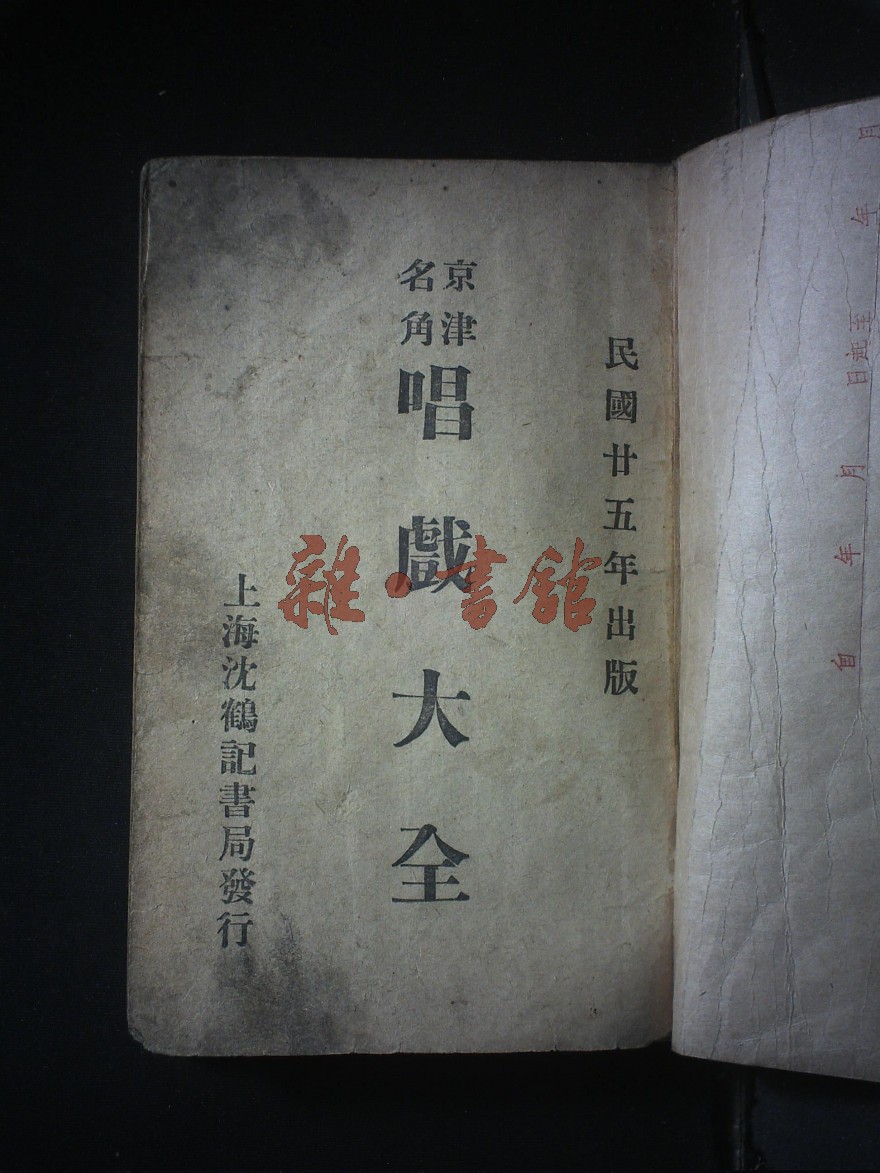 民國廿五年出版
京津
名角
唱戲大全
上海沈鶴記書局發行
雜·書館
年 月
日 至
自 年 月